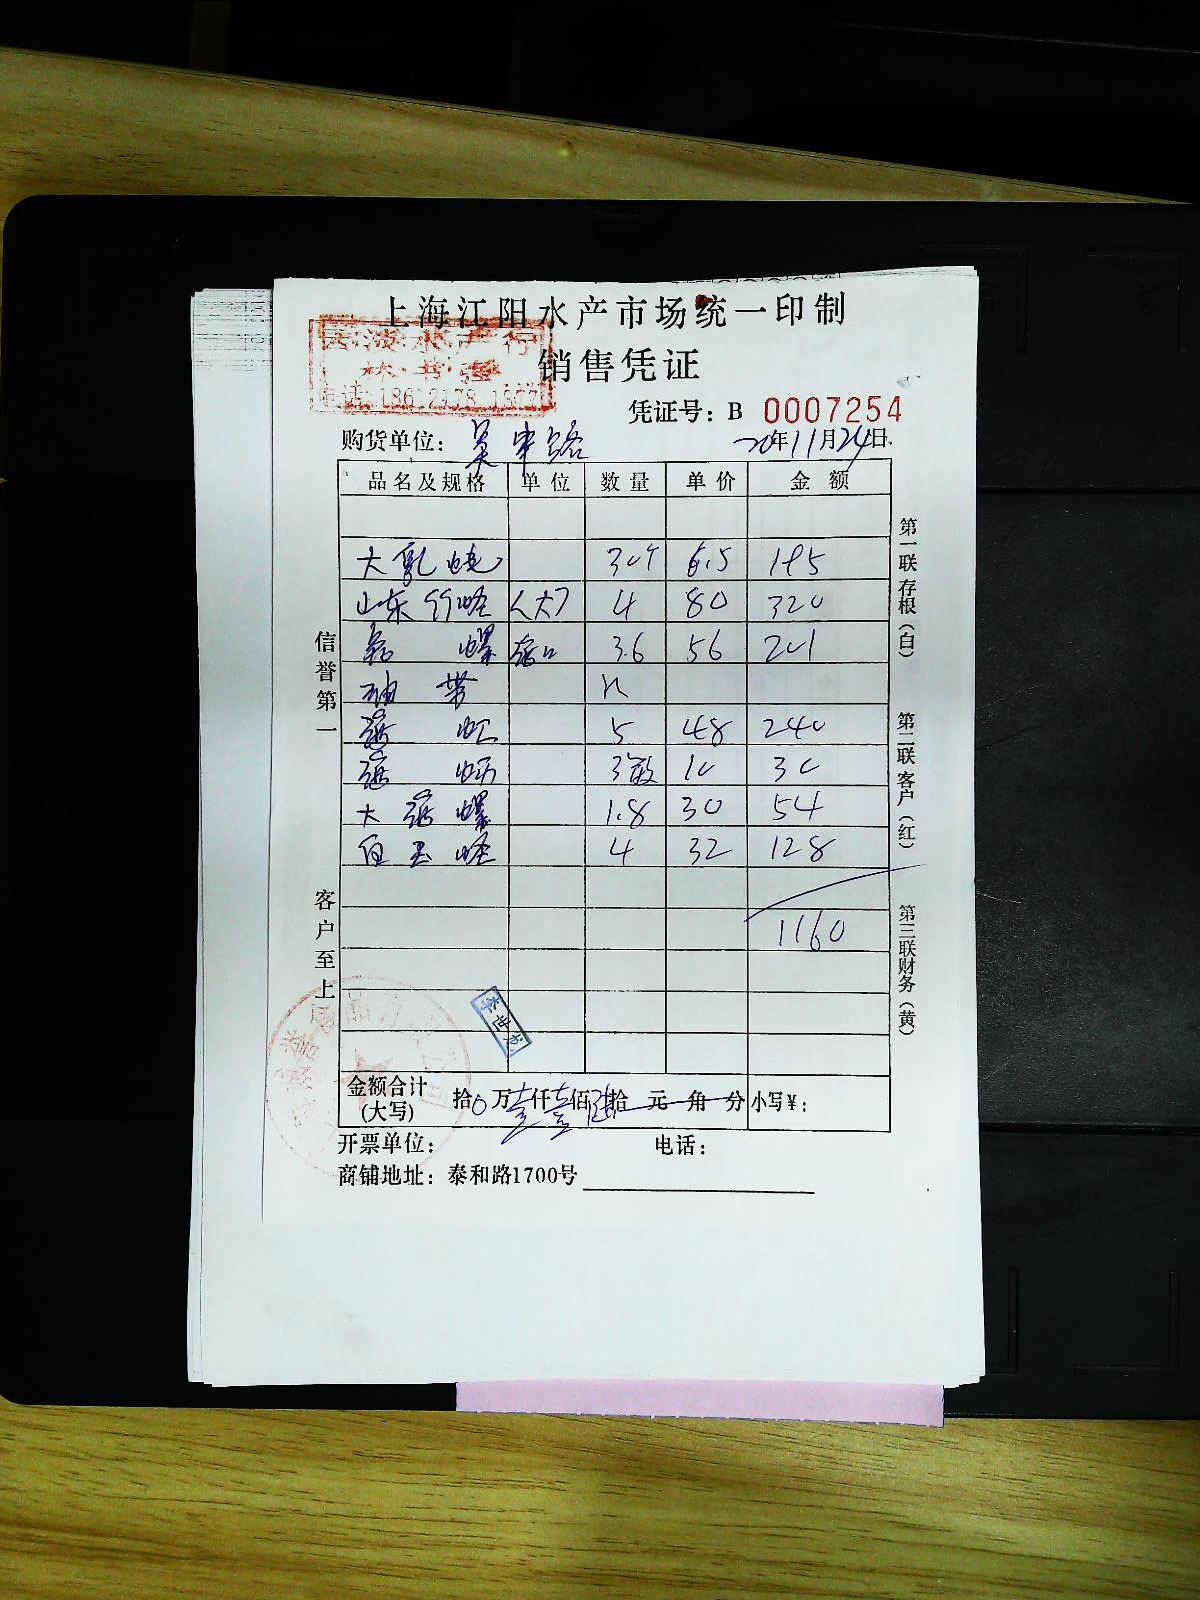 上海江阳水产市场统一印制
销售凭证
凭证号：B 0007254
购货单位：吴中路 20年11月24日
品名及规格 单位 数量 单价 金额
大乳 30个 6.5 195
山东竹蛏 (大) 4 80 320
螺 3.6 56 201
5 48 240
3 10 30
大 螺 1.8 30 54
白玉蛏 4 32 128
1160
金额合计(大写) 拾0万壹仟壹佰陆拾元角分 小写¥：
开票单位： 电话：
商铺地址：泰和路1700号
信誉第一
客户至上
第一联存根（白）
第二联客户（红）
第三联财务（黄）
李世龙